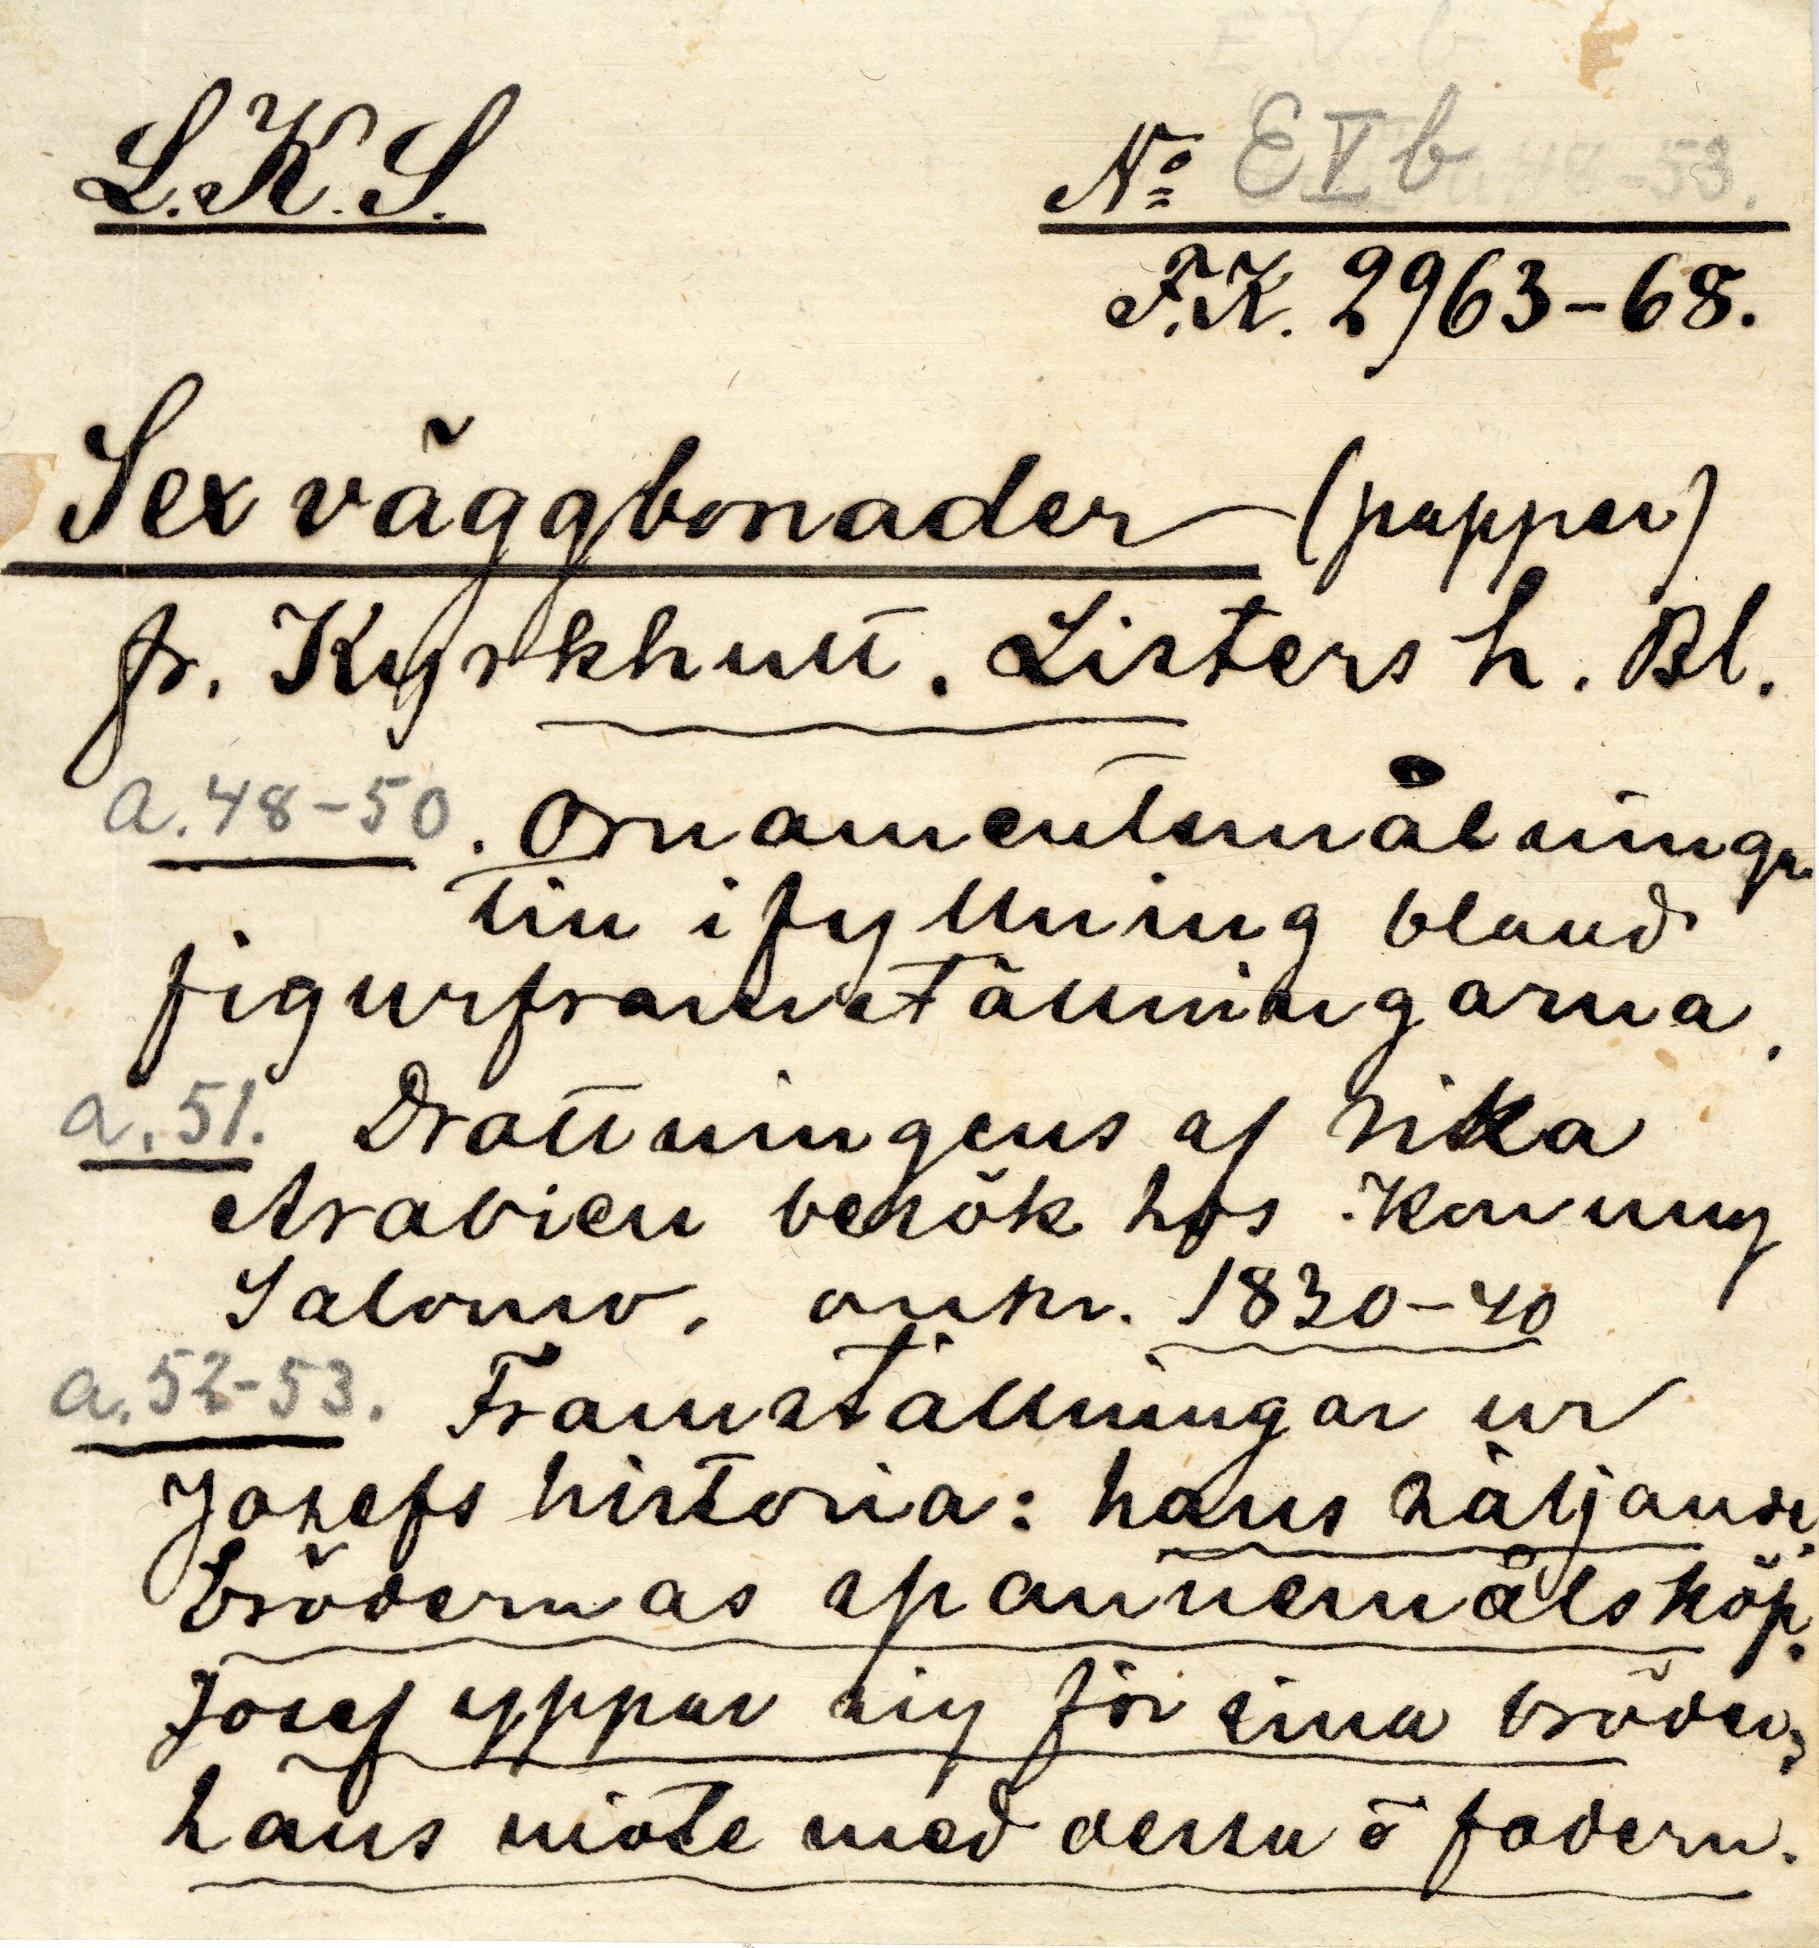 L.K.S.
No EVb
F.K. 2963-68.
Sex väggbonader (papper)
fr. Kyrkhult. Listers h. Bl.
a.48-50. Ornamentsmålningr.
till ifyllning bland
figurframställningarna.
a.51. Drottningens af rika
Arabien besök hos Konung
Salomo. omkr. 1830-40
a.52-53. Framställningar ur
Josefs historia: hans säljande,
brödernas spannemålsköp.
Josef yppar sig för sina bröder,
hans möte med dessa o fadern.